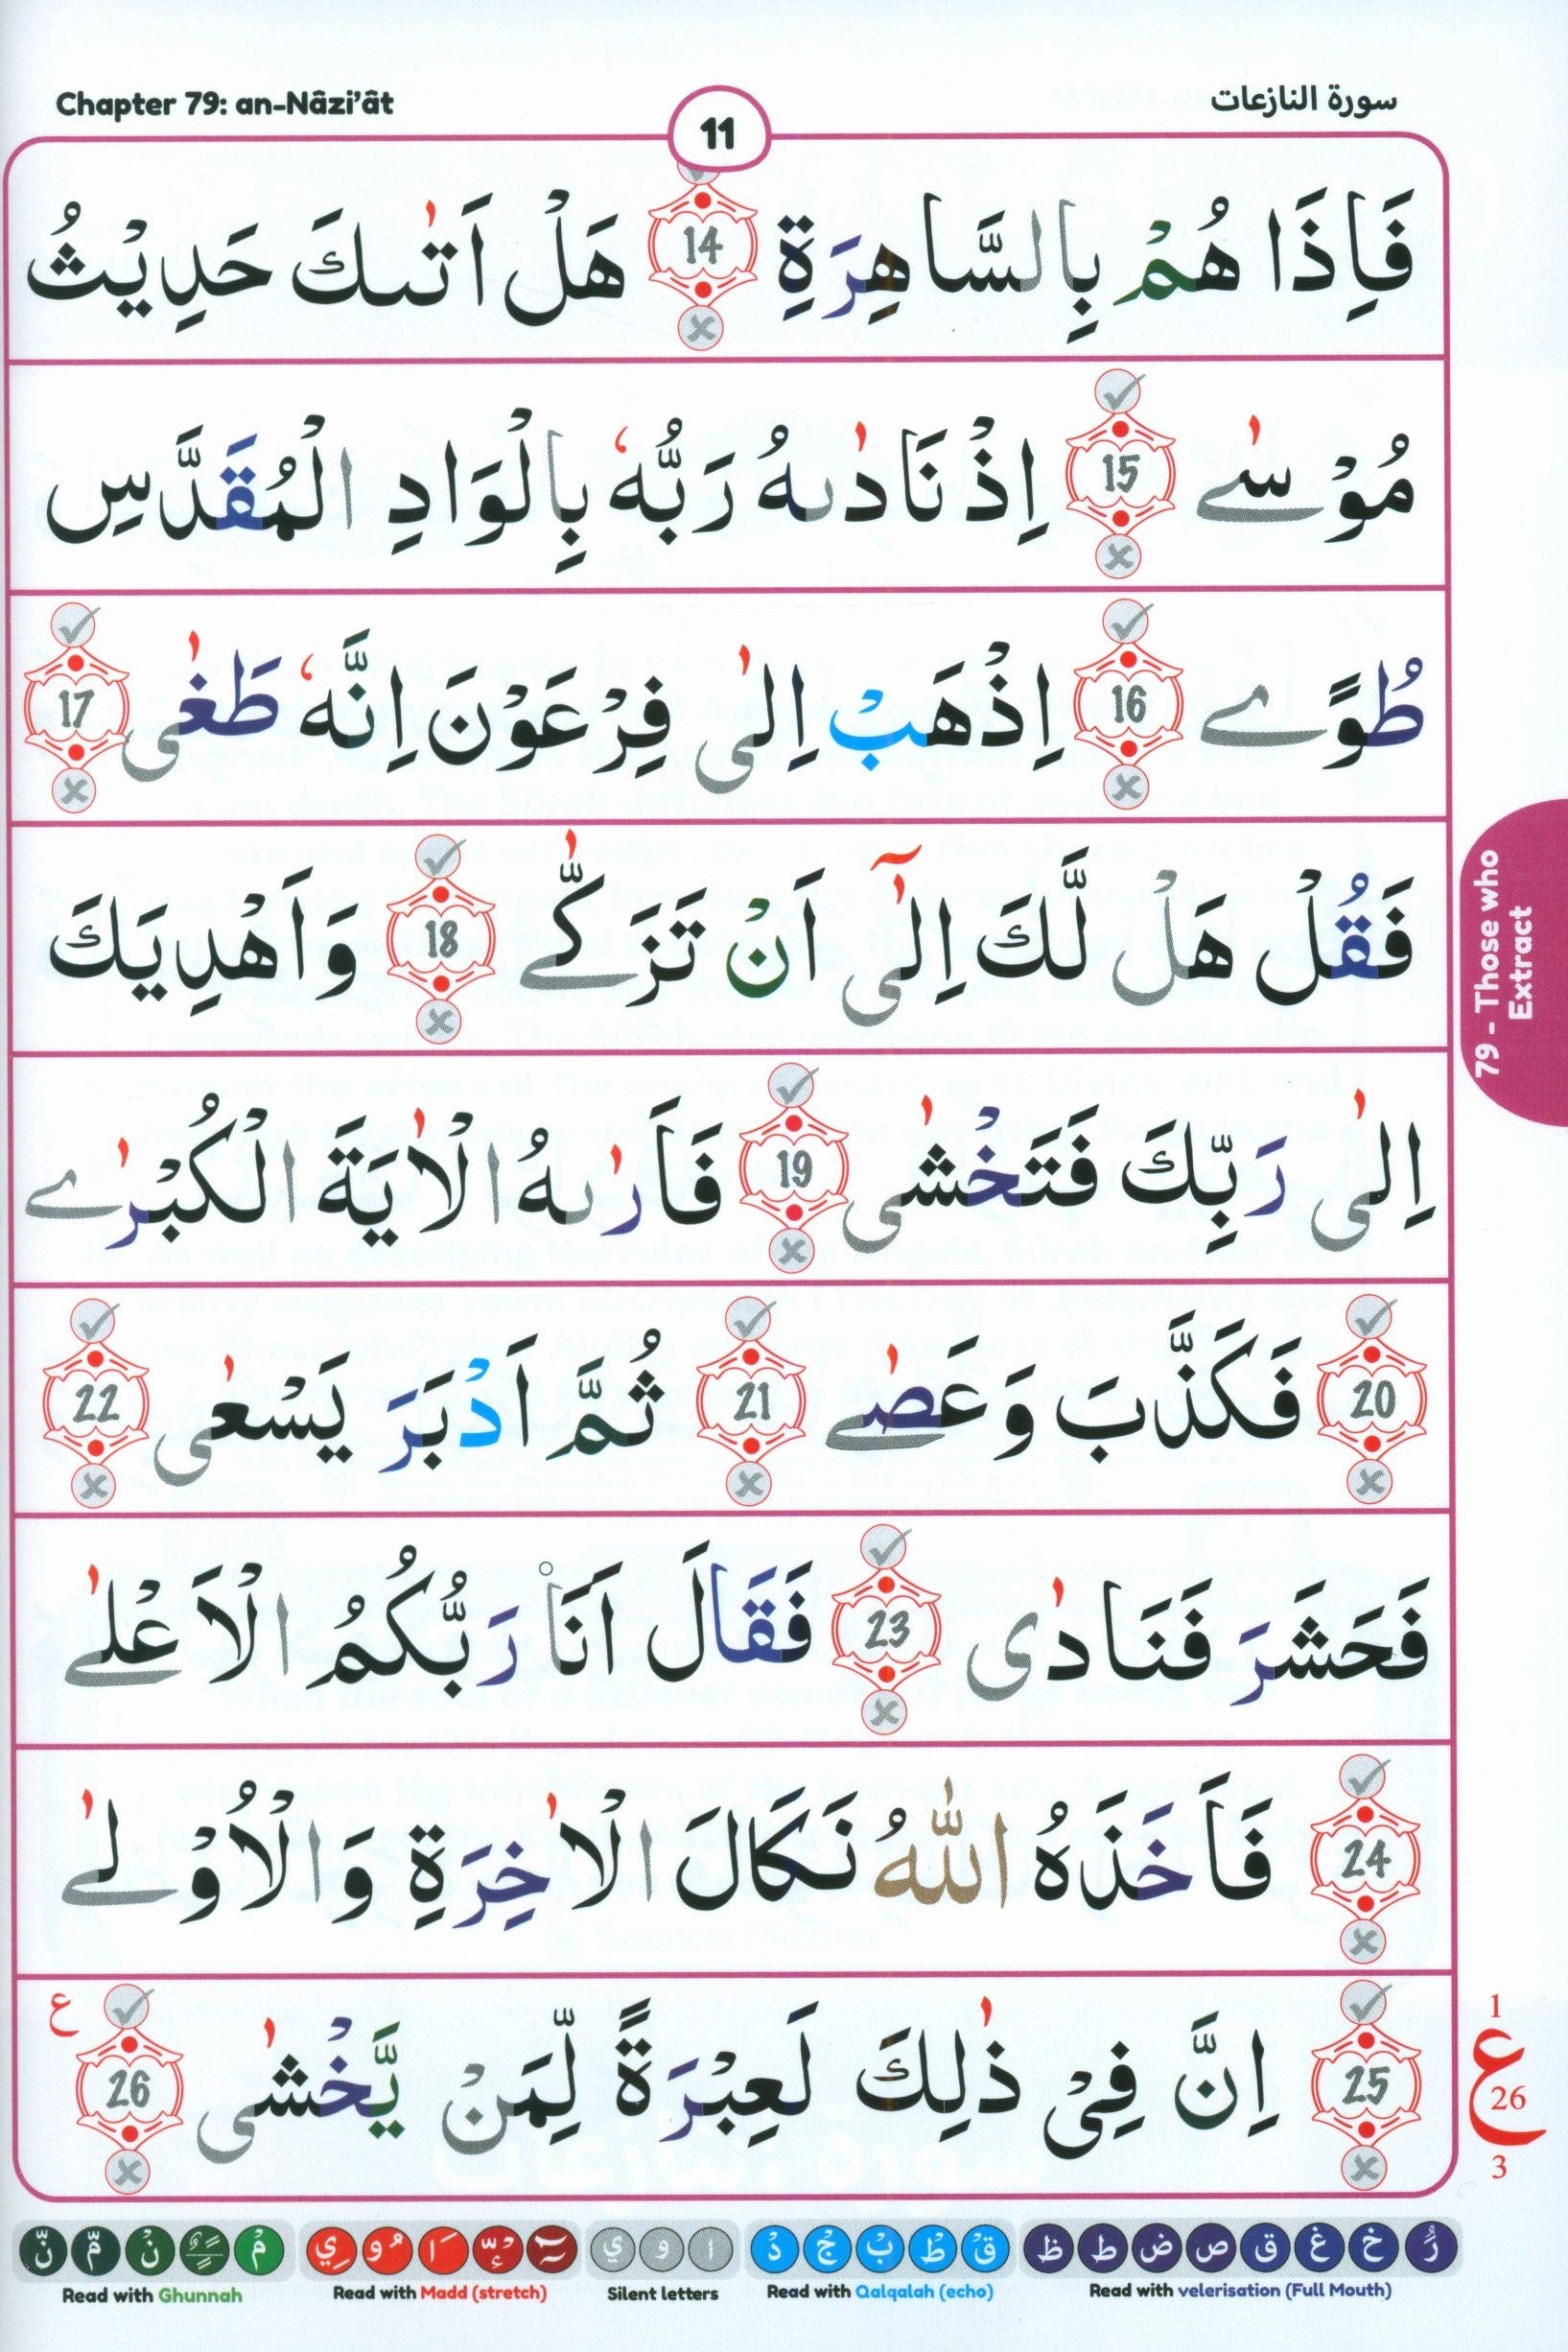 Chapter 79: an-Nâzi’ât
سورة النازعات
11
فَاِذَا هُمْ بِالسَّاهِرَةِ 14 هَلْ اَتٰىكَ حَدِيْثُ
مُوْسٰے 15 اِذْ نَادٰىهُ رَبُّهٗ بِالْوَادِ الْمُقَدَّسِ
طُوًے 16 اِذْهَبْ اِلٰى فِرْعَوْنَ اِنَّهٗ طَغٰى 17
فَقُلْ هَلْ لَّكَ اِلٰٓى اَنْ تَزَكّٰے 18 وَاَهْدِيَكَ
اِلٰى رَبِّكَ فَتَخْشٰى 19 فَاَرٰىهُ الْاٰيَةَ الْكُبْرٰے
20 فَكَذَّبَ وَعَصٰے 21 ثُمَّ اَدْبَرَ يَسْعٰى 22
فَحَشَرَ فَنَادٰى 23 فَقَالَ اَنَا۠ رَبُّكُمُ الْاَعْلٰے
24 فَاَخَذَهُ اللّٰهُ نَكَالَ الْاٰخِرَةِ وَالْاُوْلٰے
25 اِنَّ فِىْ ذٰلِكَ لَعِبْرَةً لِّمَنْ يَّخْشٰى 26 ع
79 - Those who
Extract
1
ع
26
3
رُ خ غ ق ص ض ط ظ
Read with velerisation (Full Mouth)
قْ طْ بْ جْ دْ
Read with Qalqalah (echo)
ا و ي
Silent letters
Read with Madd (stretch)
مْ نْ مّ نّ
Read with Ghunnah